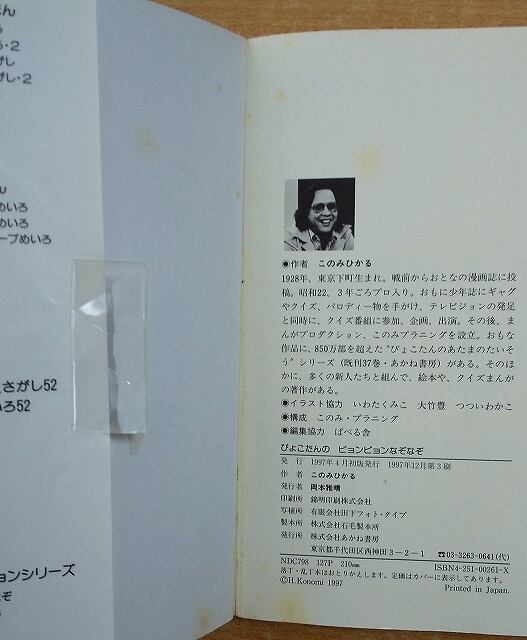 ほん
ら・2
がし
がし・2
めいろ
めいろ
ープめいろ
さがし52
いろ52
ョンシリーズ
なぞ
●作者 このみひかる
1928年、東京下町生まれ。戦前からおとなの漫画誌に投
稿。昭和22、3年ごろプロ入り。おもに少年誌にギャグ
やクイズ、パロディー物を手がけ、テレビジョンの発足
と同時に、クイズ番組に参加、企画、出演。その後、ま
んがプロダクション、このみプラニングを設立。おもな
作品に、850万部を超えた“ぴょこたんのあたまのたいそ
う”シリーズ（既刊37巻・あかね書房）がある。そのほ
かに、多くの新人たちと組んで、絵本や、クイズまんが
の著作がある。
●イラスト協力 いわたくみこ 大竹豊 つついわかこ
●構成 このみ・プラニング
●編集協力 ぱぺる舎
ぴょこたんの ピョンピョンなぞなぞ
発 行 1997年4月初版発行 1997年12月第3刷
作 者 このみひかる
発行者 岡本雅晴
印刷所 錦明印刷株式会社
写植所 有限会社田下フォト・タイプ
製本所 株式会社石毛製本所
発行所 株式会社あかね書房
東京都千代田区西神田3－2－1 ☎03-3263-0641(代)
NDC798 127P 210mm ISBN4-251-00261-X
落丁・乱丁本はおとりかえします。定価はカバーに表示してあります。
©H.Konomi 1997 Printed in Japan.